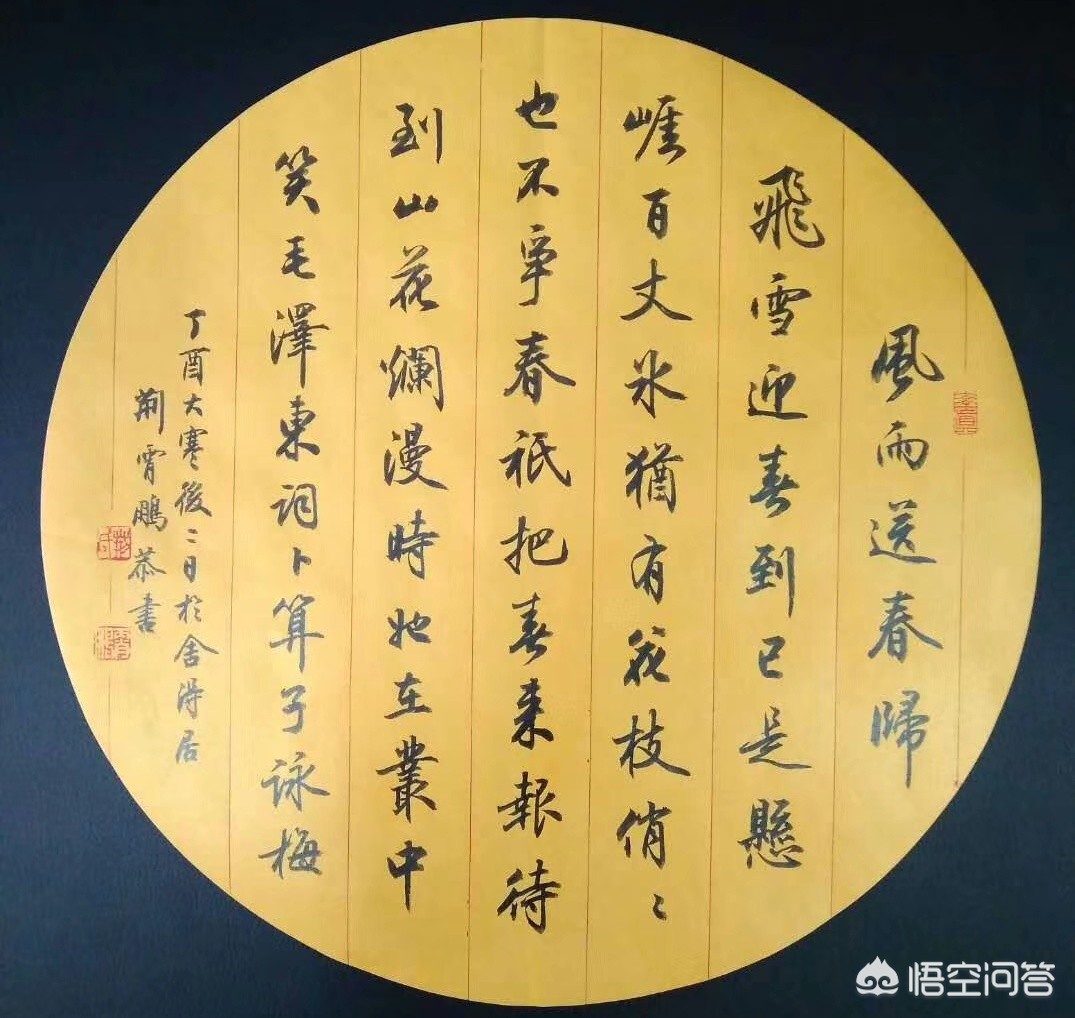 風雨送春歸
飛雪迎春到已是懸
崖百丈冰猶有花枝俏〻
也不爭春祇把春來報待
到山花爛漫時她在叢中
笑毛澤東詞卜算子詠梅
丁酉大寒後二日於舍得居
荊霄鵬恭書
悟空问答